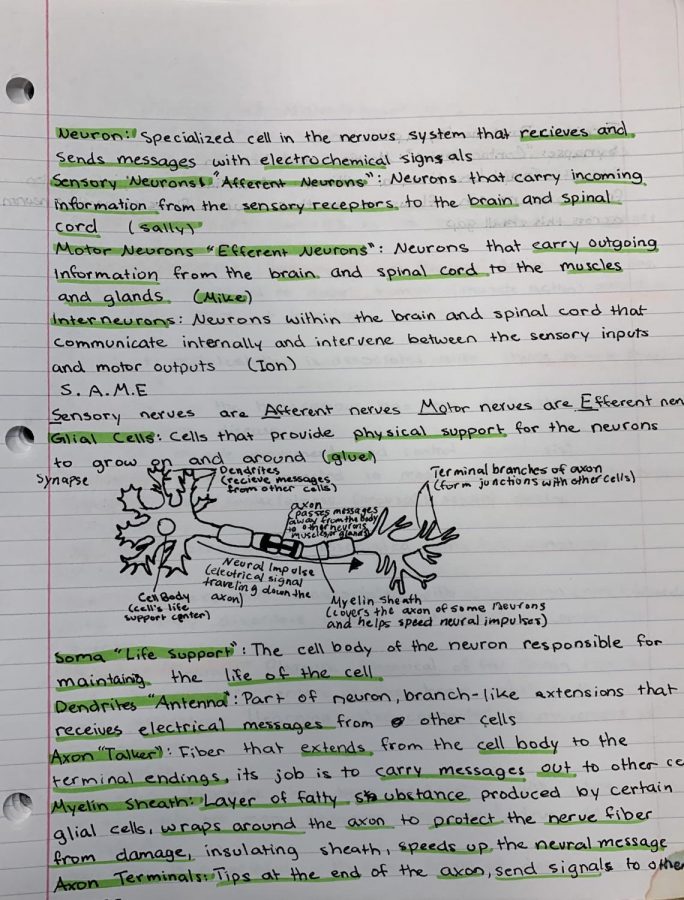 Neuron: Specialized cell in the nervous system that recieves and
sends messages with electrochemical signals
Sensory Neurons "Afferent Neurons": Neurons that carry incoming
information from the sensory receptors to the brain and spinal
cord (sally)
Motor Neurons "Efferent Neurons": Neurons that carry outgoing
information from the brain and spinal cord to the muscles
and glands (Mike)
Interneurons: Neurons within the brain and spinal cord that
communicate internally and intervene between the sensory inputs
and motor outputs (Ion)
S.A.M.E
Sensory nerves are Afferent nerves Motor nerves are Efferent ner
Glial Cells: Cells that provide physical support for the neurons
to grow on and around (glue)
Synapse
Dendrites
(recieve messages
from other cells)
axon
(passes messages
away from the body
to other neurons,
muscles, or glands)
Terminal branches of axon
(form junctions with other cells)
Cell Body
(cell's life
support center)
Neural Impulse
(electrical signal
traveling down the
axon)
Myelin Sheath
(covers the axon of some neurons
and helps speed neural impulses)
Soma "Life Support": The cell body of the neuron responsible for
maintaining the life of the cell
Dendrites "Antenna": Part of neuron, branch-like extensions that
receives electrical messages from other cells
Axon "Talker": Fiber that extends from the cell body to the
terminal endings, its job is to carry messages out to other ce
Myelin Sheath: Layer of fatty substance produced by certain
glial cells, wraps around the axon to protect the nerve fiber
from damage, insulating sheath, speeds up the neural message
Axon Terminals: Tips at the end of the axon, send signals to other